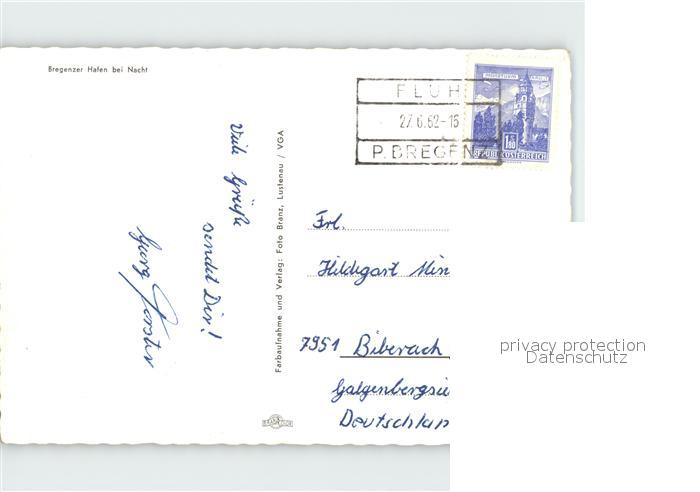 Bregenzer Hafen bei Nacht
FLUH
27.6.62-15
P. BREGENZ
1.80
REPUBLIK ÖSTERREICH
Viele Grüße
sendet Dir!
Georg Forster
Farbaufnahme und Verlag: Foto Branz, Lustenau / VGA
Frl.
Hildegart Min
7951 Biberach
Galgenbergsie
Deutschlan
privacy protection
Datenschutz